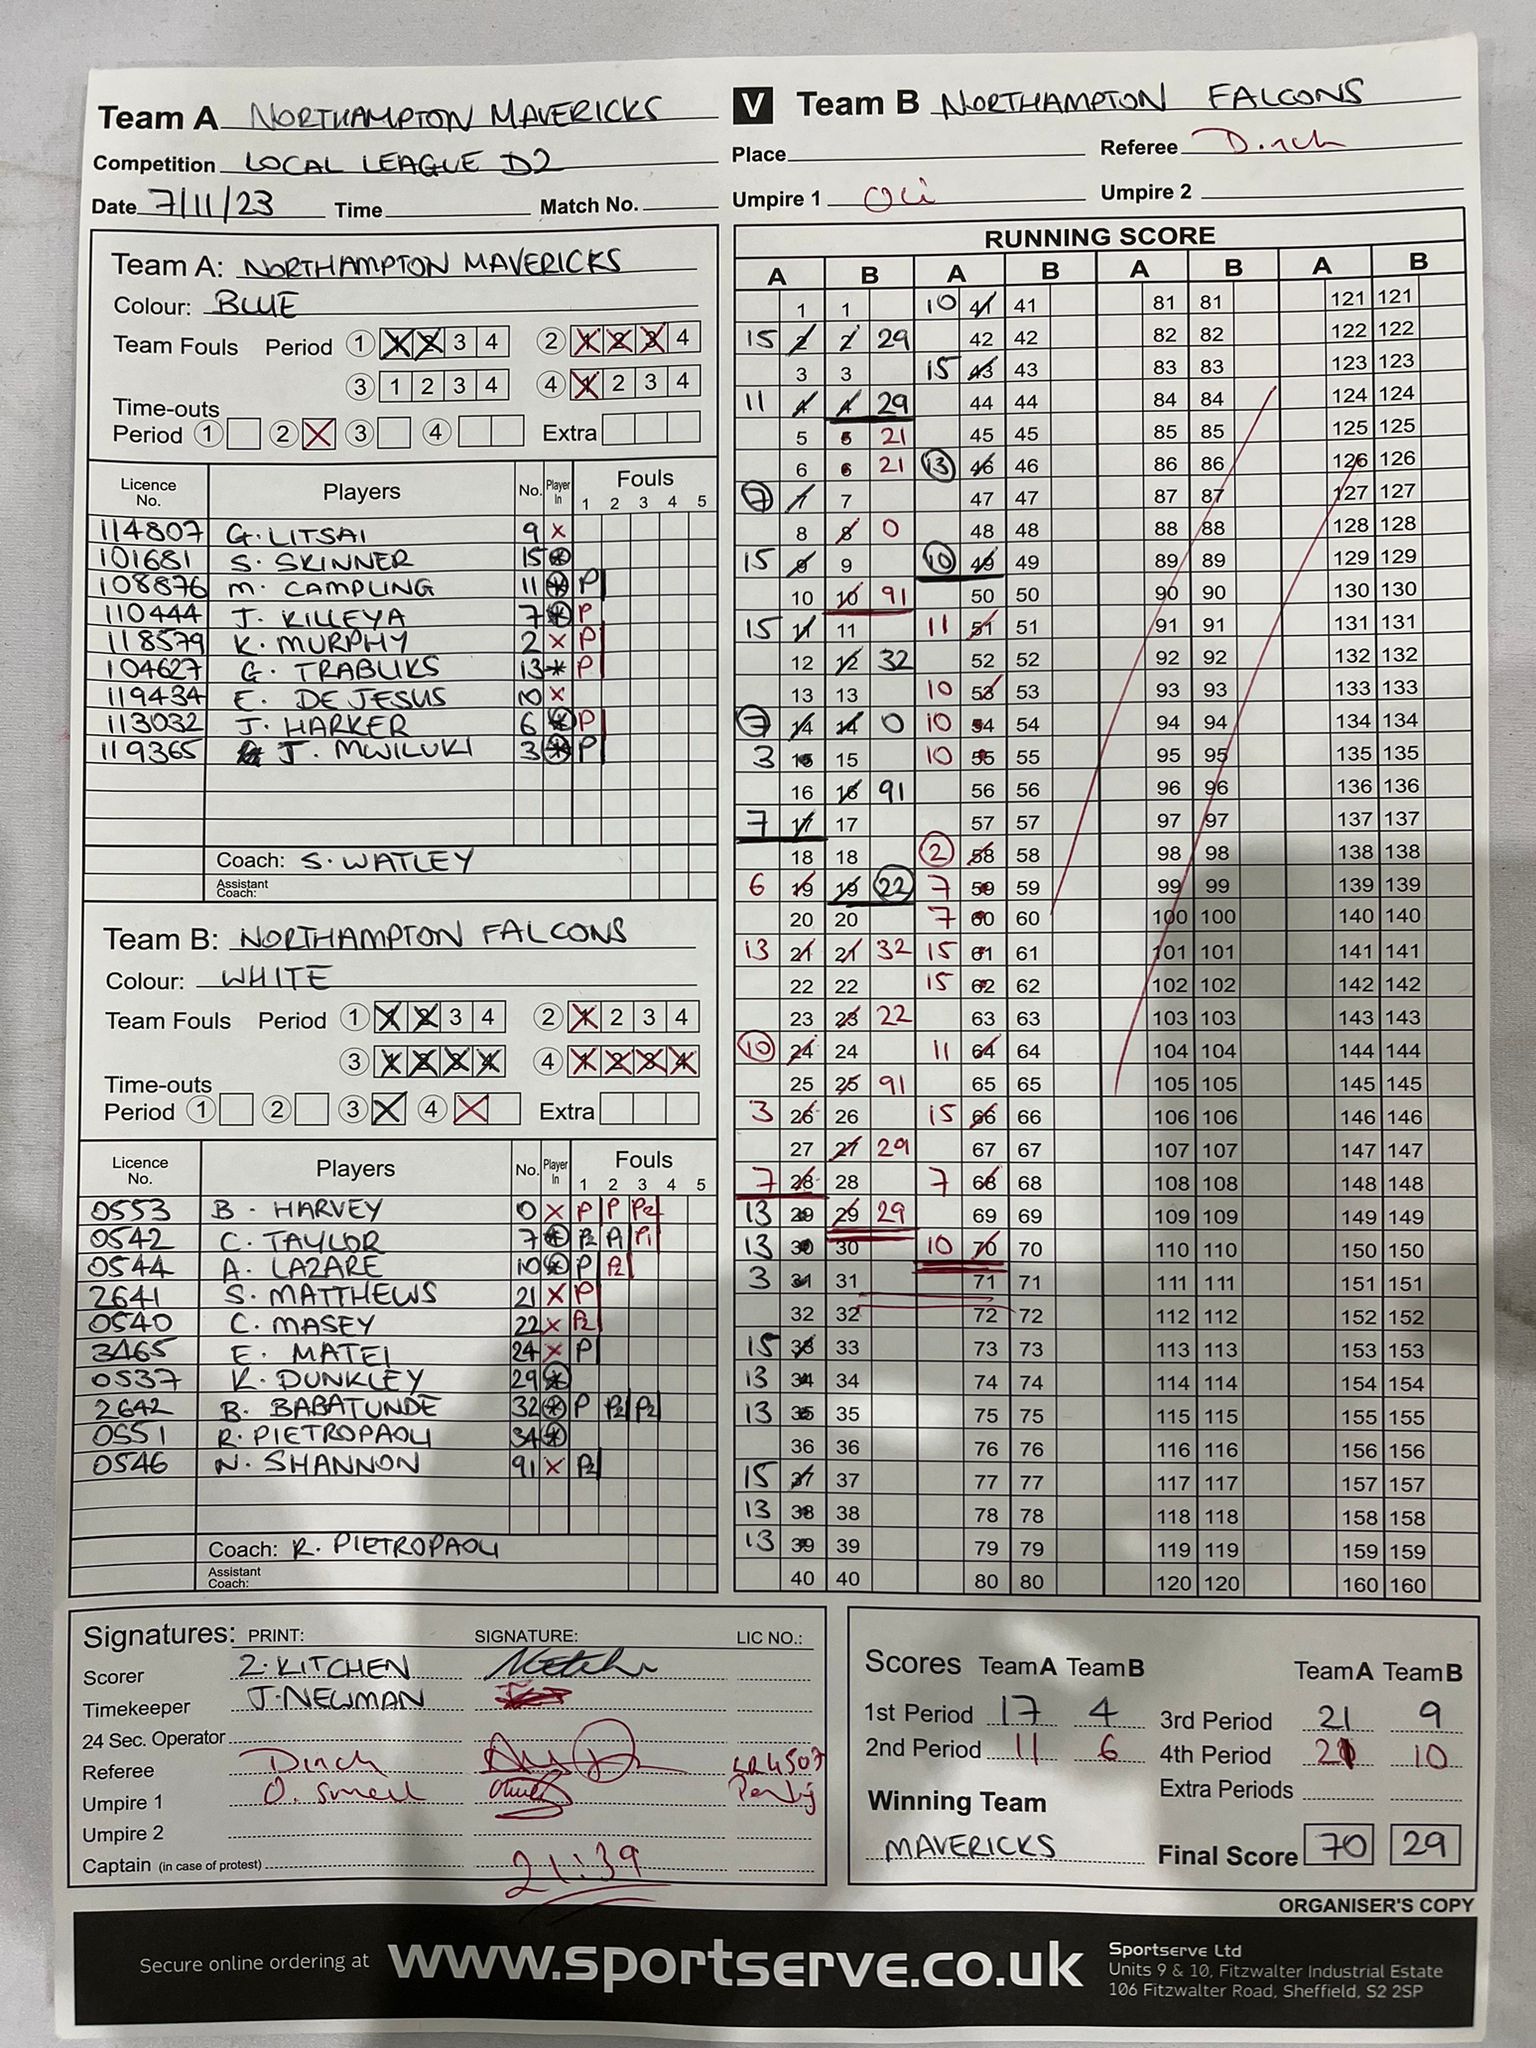 Team A NORTHAMPTON MAVERICKS V Team B NORTHAMPTON FALCONS
Competition LOCAL LEAGUE D2 Place Referee
Date 7/11/23 Time Match No. Umpire 1 Oli Umpire 2
Team A: NORTHAMPTON MAVERICKS
Colour: BLUE
Team Fouls Period 1 1 2 3 4 2 1 2 3 4
3 1 2 3 4 4 1 2 3 4
Time-outs
Period 1 2 X 3 4 Extra
Licence No. Players No. Player In Fouls
1 2 3 4 5
114807 G. LITSAI 9 X
101681 S. SKINNER 15 X
108876 M. CAMPLING 11 X P
110444 J. KILLEYA 7 X P
118579 K. MURPHY 2 X P
104627 G. TRABUKS 13 X P
119434 E. DE JESUS 10 X
113032 J. HARKER 6 X P
119365 J. MWILUKI 3 X P
Coach: S. WATLEY
Assistant Coach:
Team B: NORTHAMPTON FALCONS
Colour: WHITE
Team Fouls Period 1 1 2 3 4 2 1 2 3 4
3 1 2 3 4 4 1 2 3 4
Time-outs
Period 1 2 3 X 4 X Extra
Licence No. Players No. Player In Fouls
1 2 3 4 5
0553 B. HARVEY 0 X P P P2
0542 C. TAYLOR 7 X P2 A P1
0544 A. LAZARE 10 X P P2
2641 S. MATTHEWS 21 X P
0540 C. MASEY 22 X P2
3465 E. MATEI 24 X P
0537 K. DUNKLEY 29 X
2642 B. BABATUNDE 32 X P P2 P2
0551 R. PIETROPAOLI 34 X
0546 N. SHANNON 91 X P2
Coach: R. PIETROPAOLI
Assistant Coach:
RUNNING SCORE
A B A B A B A B
1 1 10 41 41 81 81 121 121
15 2 2 29 42 42 82 82 122 122
3 3 15 43 43 83 83 123 123
11 4 4 29 44 44 84 84 124 124
5 5 21 45 45 85 85 125 125
6 6 21 13 46 46 86 86 126 126
7 7 7 47 47 87 87 127 127
8 8 0 48 48 88 88 128 128
15 9 9 10 49 49 89 89 129 129
10 10 91 50 50 90 90 130 130
15 11 11 11 51 51 91 91 131 131
12 12 32 52 52 92 92 132 132
13 13 10 53 53 93 93 133 133
7 14 14 0 10 54 54 94 94 134 134
3 15 15 10 55 55 95 95 135 135
16 16 91 56 56 96 96 136 136
7 17 17 57 57 97 97 137 137
18 18 2 58 58 98 98 138 138
6 19 19 22 7 59 59 99 99 139 139
20 20 7 60 60 100 100 140 140
13 21 21 32 15 61 61 101 101 141 141
22 22 15 62 62 102 102 142 142
23 23 22 63 63 103 103 143 143
10 24 24 11 64 64 104 104 144 144
25 25 91 65 65 105 105 145 145
3 26 26 15 66 66 106 106 146 146
27 27 29 67 67 107 107 147 147
7 28 28 7 68 68 108 108 148 148
13 29 29 29 69 69 109 109 149 149
13 30 30 10 70 70 110 110 150 150
3 31 31 71 71 111 111 151 151
32 32 72 72 112 112 152 152
15 33 33 73 73 113 113 153 153
13 34 34 74 74 114 114 154 154
13 35 35 75 75 115 115 155 155
36 36 76 76 116 116 156 156
15 37 37 77 77 117 117 157 157
13 38 38 78 78 118 118 158 158
13 39 39 79 79 119 119 159 159
40 40 80 80 120 120 160 160
Signatures: PRINT: SIGNATURE: LIC NO.:
Scorer Z. KITCHEN
Timekeeper J. NEWMAN
24 Sec. Operator
Referee
Umpire 1 O. Smell
Umpire 2
Captain (in case of protest) 21:39
Scores Team A Team B Team A Team B
1st Period 17 4 3rd Period 21 9
2nd Period 11 6 4th Period 21 10
Extra Periods
Winning Team
MAVERICKS Final Score 70 29
ORGANISER'S COPY
Secure online ordering at www.sportserve.co.uk
Sportserve Ltd
Units 9 & 10, Fitzwalter Industrial Estate
106 Fitzwalter Road, Sheffield, S2 2SP